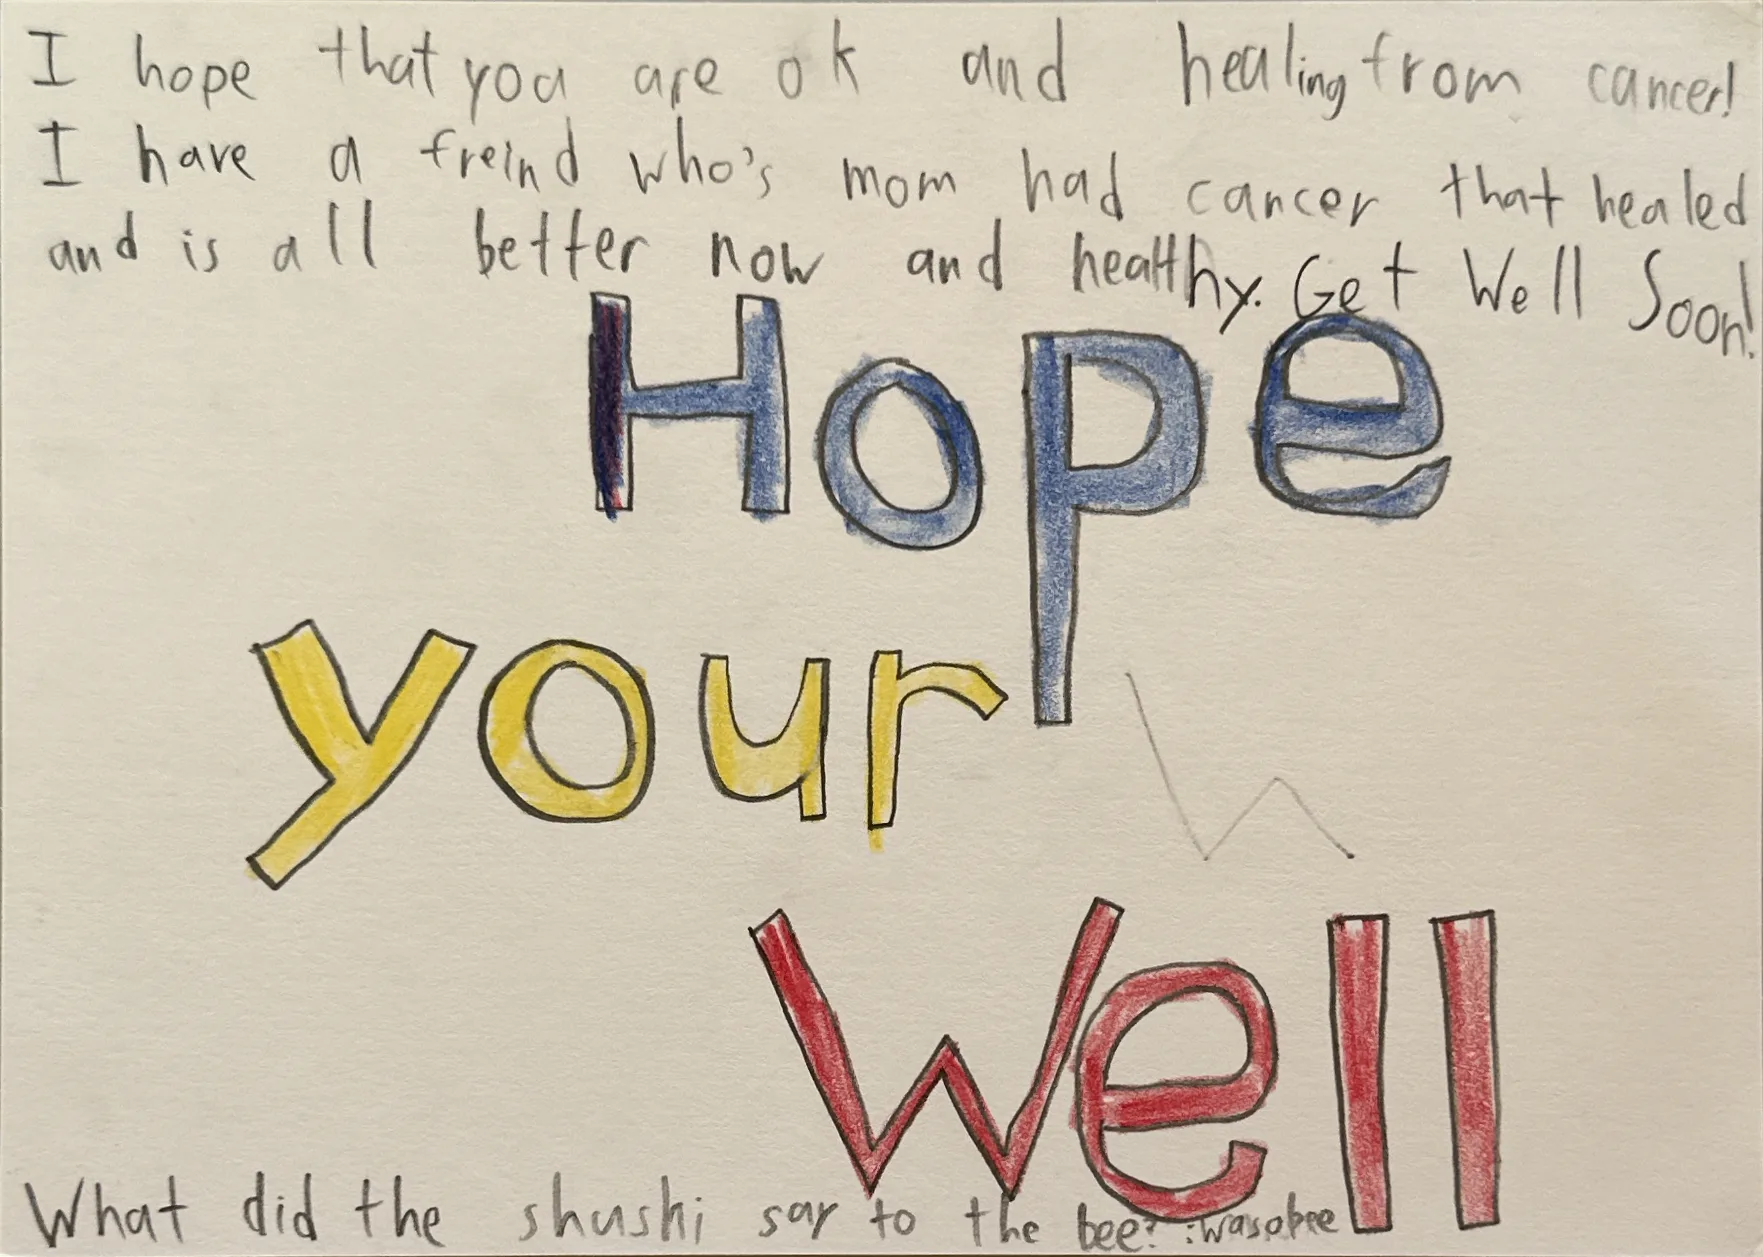 I hope that you are ok and healing from cancer!
I have a freind who's mom had cancer that healed
and is all better now and healthy. Get Well Soon!
Hope
your
Well
What did the shushi say to the bee? :wasabee